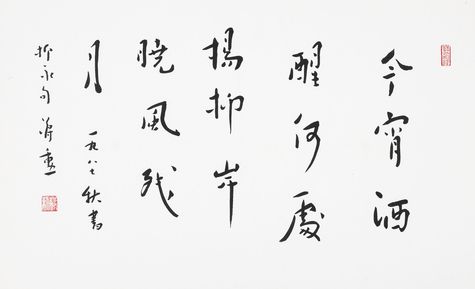 今宵酒
醒何處
楊柳岸
曉風残
月
一九八七秋書
柳永句 蔣勳